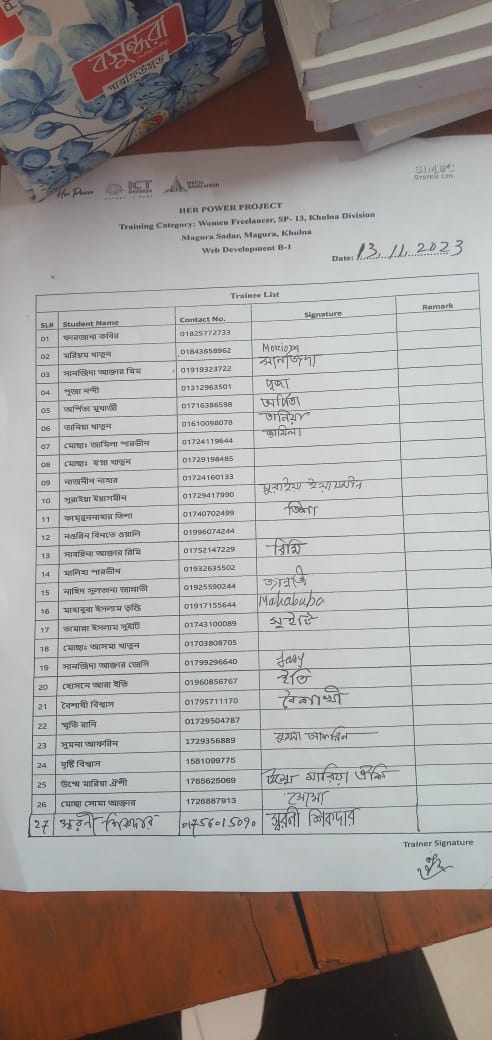 বসুন্ধরা
পারফিউমড
Her Power
ICT
DIVISION
DIGITAL
BANGLADESH
SIMEC
SYSTEM LTD.
HER POWER PROJECT
Training Category: Women Freelancer, SP- 13, Khulna Division
Magura Sadar, Magura, Khulna
Web Development B-1
Date: 13.11.2023
Trainee List
SL# Student Name Contact No. Signature Remark
01 ফারজানা কবির 01825772733
02 মরিয়ম খাতুন 01843658962
03 সানজিদা আক্তার মিম 01919323722 সানজিদা
04 পূজা নন্দী 01312963501 পূজা
05 অর্পিতা মুখার্জী 01716386598 অর্পিতা
06 তানিয়া খাতুন 01610098078 তানিয়া
07 মোছাঃ জামিলা পারভীন 01724119644 জামিলা
08 মোছাঃ রত্না খাতুন 01729198485
09 নাজনীন নাহার 01724160133
10 সুরাইয়া ইয়াসমীন 01729417990 সুরাইয়া ইয়াসমীন
11 কামরুননাহার জিনা 01740702499
12 নওরিন বিনতে ওয়ালি 01996074244
13 সাবরিনা আক্তার রিমি 01752147229 রিমি
14 মালিহা পারভীন 01932635502
15 নাহিদ সুলতানা জ্যোতি 01925590244
16 মাহাবুবা ইসলাম তৃপ্তি 01917155644 Mahabuba
17 তামান্না ইসলাম সুইটি 01743100089 সুইটি
18 মোছাঃ আসমা খাতুন 01703808705
19 সানজিদা আক্তার জেসি 01799296640
20 হোসনে আরা ইতি 01960856767 ইতি
21 বৈশাখী বিশ্বাস 01795711170 বৈশাখী
22 স্মৃতি রানি 01729504787
23 সুমনা আফরিন 1729356889 সুমনা আফরিন
24 দৃষ্টি বিশ্বাস 1581099775
25 উম্মে মারিয়া ঐশী 1765625069 উম্মে মারিয়া ঐশী
26 মোছা সোমা আক্তার 1726887913 সোমা
27 শিকদার 01756015090 শিকদার
Trainer Signature